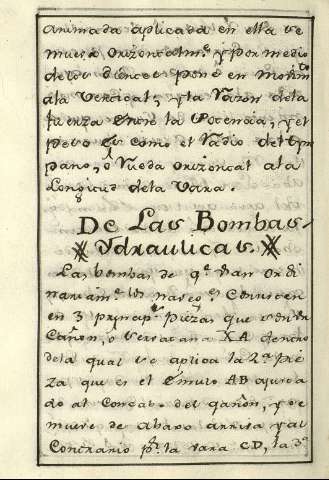 animada aplicada en ella se
mueva orizontalmᵉ. y por medio
de los dientes pone en movimᵗᵒ
ala Vertical, y la razon dela
fuerza entre la Potencia, y el
peso es como el radio del tym
pano, ò Rueda orizontal ala
Longitud dela Vara.
De Las Bombas
Ydraulicas.
Las bombas de qᵉ. usan ordi
nariamᵗᵉ. los
en 3 princip.ˢ Piezas que son un
Cañon, ò XA dentro
dela qual se aplica la 2ᵃ Pie
za que es el Embulo AB ajusta
do al Concabo del cañon, y se
mueve de abaxo arriva y al
Contrario pʳ. la vara CD, la 3ᵃ